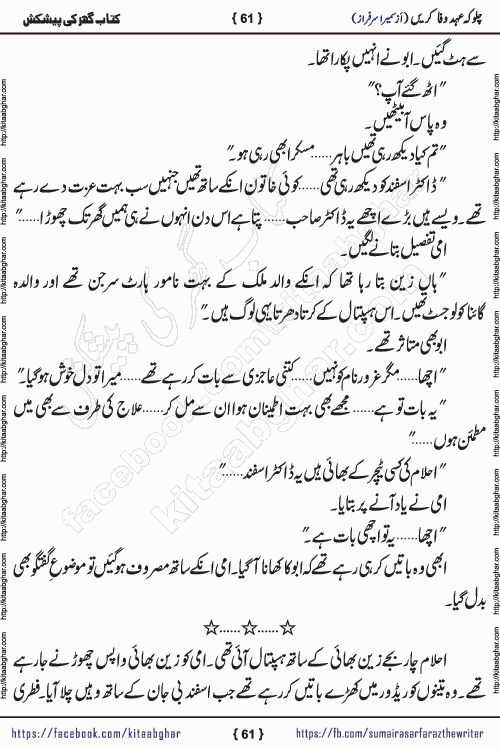 چلو کہ عہد وفا کریں (از سمیرا سرفراز) { 61 } کتاب گھر کی پیشکش
سے ہٹ گئیں۔ ابو نے انہیں پکارا تھا۔
"اٹھ گئے آپ؟"
وہ پاس آ بیٹھیں۔
"تم کیا دیکھ رہی تھیں باہر......مسکرا بھی رہی ہو۔"
"ڈاکٹر اسفند کو دیکھ رہی تھی......کوئی خاتون انکے ساتھ تھیں جنہیں سب بہت عزت دے رہے
تھے۔ ویسے ہیں بڑے اچھے یہ ڈاکٹر صاحب...... پتا ہے اس دن انہوں نے ہی ہمیں گھر تک چھوڑا......"
امی تفصیل بتانے لگیں۔
"ہاں زین بتا رہا تھا کہ انکے والد ملک کے بہت نامور ہارٹ سرجن تھے اور والدہ
گائنا کولوجسٹ تھیں۔ اس ہسپتال کے کرتا دھرتا یہی لوگ ہیں۔"
ابو بھی متاثر تھے۔
"اچھا......مگر غرور نام کو نہیں......کتنی عاجزی سے بات کر رہے تھے......میرا تو دل خوش ہو گیا۔"
"یہ بات تو ہے...... مجھے بھی بہت اطمینان ہوا ان سے مل کر......علاج کی طرف سے بھی میں
مطمئن ہوں......"
"احلام کی کسی ٹیچر کے بھائی ہیں یہ ڈاکٹر اسفند......"
امی نے یاد آنے پر بتایا۔
"اچھا......یہ تو اچھی بات ہے۔"
ابھی وہ باتیں کر ہی رہے تھے کہ ابو کا کھانا آ گیا۔ امی انکے ساتھ مصروف ہو گئیں تو موضوعِ گفتگو بھی
بدل گیا۔
☆......☆......☆
احلام چار بجے زین بھائی کے ساتھ ہسپتال آئی تھی۔ امی کو زین بھائی واپس چھوڑنے جا رہے
تھے۔ وہ تینوں کوریڈور میں کھڑے باتیں کر رہے تھے جب اسفند بی جان کے ساتھ وہیں چلا آیا۔ فطری
https://facebook.com/kitaabghar { 61 } https://fb.com/sumairasarfarazthewriter
http://kitaabghar.com
کتاب گھر کی پیشکش
kitaabghar.com
facebook.com/kitaabghar